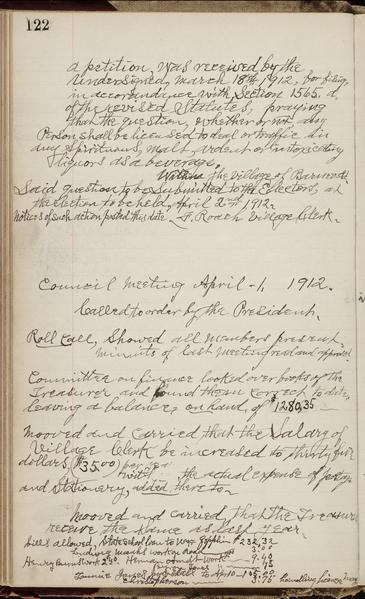 122
a petition, was received by the
undersigned, March 18th 1912, for filing,
in accordance with Section 1565. d.
of the revised Statutes, praying
that the question, whether or not any
Person shall be licensed to deal or traffic in
any Spirituous, malt, ardent or intoxicating
Liquors as a beverage.
Within the Village of
Said question to be Submitted to the Electors, at
the Election to be held, April 2nd 1912.
Notices of such action posted this date. F. Roach Village Clerk.
Council Meeting April 1, 1912.
Called to order by the President.
Roll Call, Showed all Members present.
minuits of Last Meeting read and approved
Committee on finance looked over books of the
Treasurer and found them correct to date,
leaving a balance, on hand, of $1280,35
Mooved and Carried that the Salary of
Village Clerk be increased to thirty five
dollars, $35.00 per year
with the actual expense of
and stationery, added thereto.
Mooved and carried, that the Treasurer
receive the same as last year.
bills allowed, State School loan to $232,32
3.00
Henry 2.40 Herman work 9.40
3.75